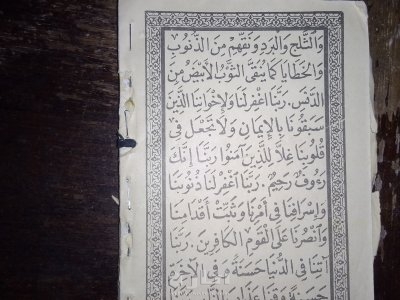 وَالثَّلْجِ وَالْبَرَدِ وَنَقِّهِمْ مِنَ الذُّنُوبِ
وَالْخَطَايَا كَمَا يُنَقَّى الثَّوْبُ الْأَبْيَضُ مِنَ
الدَّنَسِ. رَبَّنَا اغْفِرْ لَنَا وَلِإِخْوَانِنَا الَّذِينَ
سَبَقُونَا بِالْإِيمَانِ وَلَا تَجْعَلْ فِي
قُلُوبِنَا غِلًّا لِلَّذِينَ آمَنُوا رَبَّنَا إِنَّكَ
رَءُوفٌ رَحِيمٌ. رَبَّنَا اغْفِرْ لَنَا ذُنُوبَنَا
وَإِسْرَافَنَا فِي أَمْرِنَا وَثَبِّتْ أَقْدَامَنَا
وَانْصُرْنَا عَلَى الْقَوْمِ الْكَافِرِينَ. رَبَّنَا
آتِنَا فِي الدُّنْيَا حَسَنَةً وَفِي الْآخِرَةِ